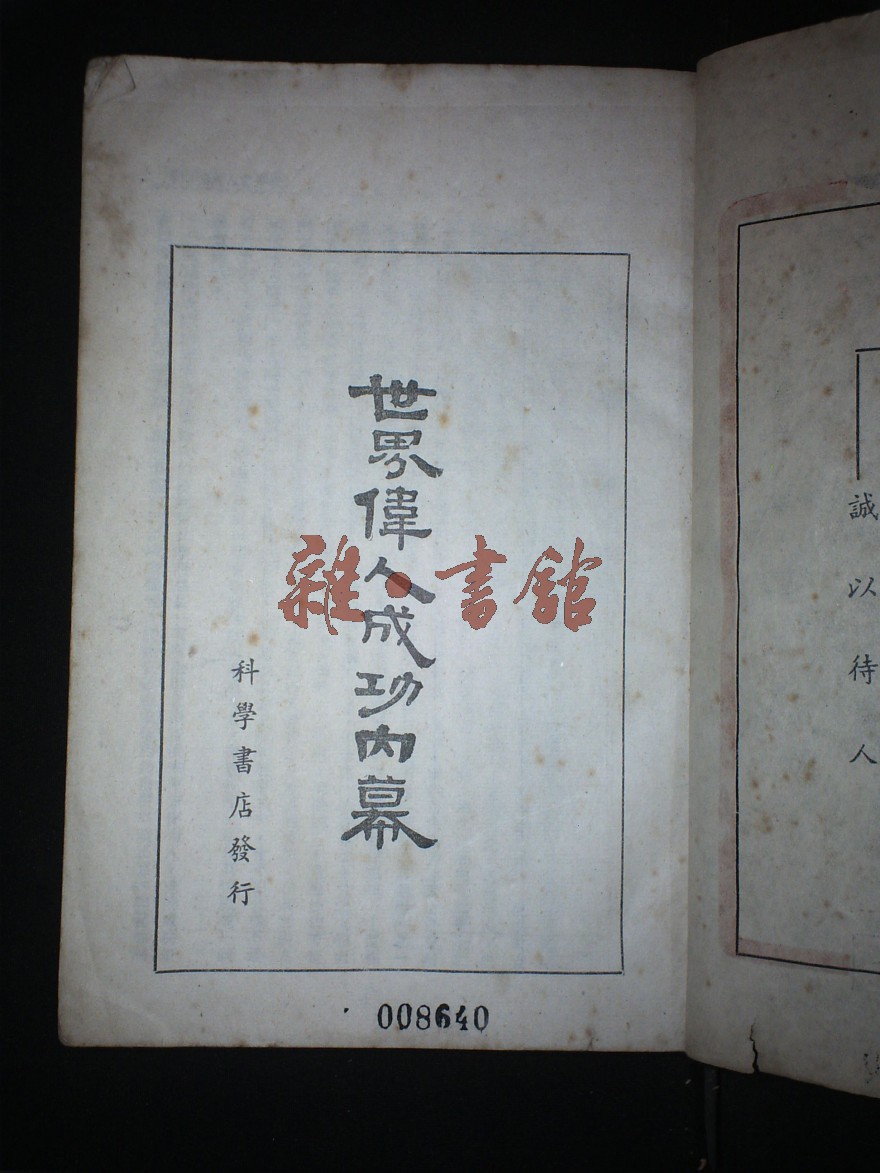 世界偉人成功內幕
科學書店發行
008640
誠以待人
雜·書館